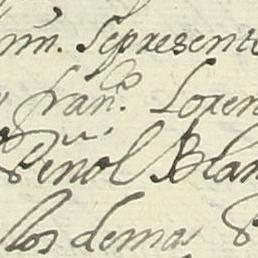 mñ. Sepresento
fran.co Loren
Peñol Blan
los demas